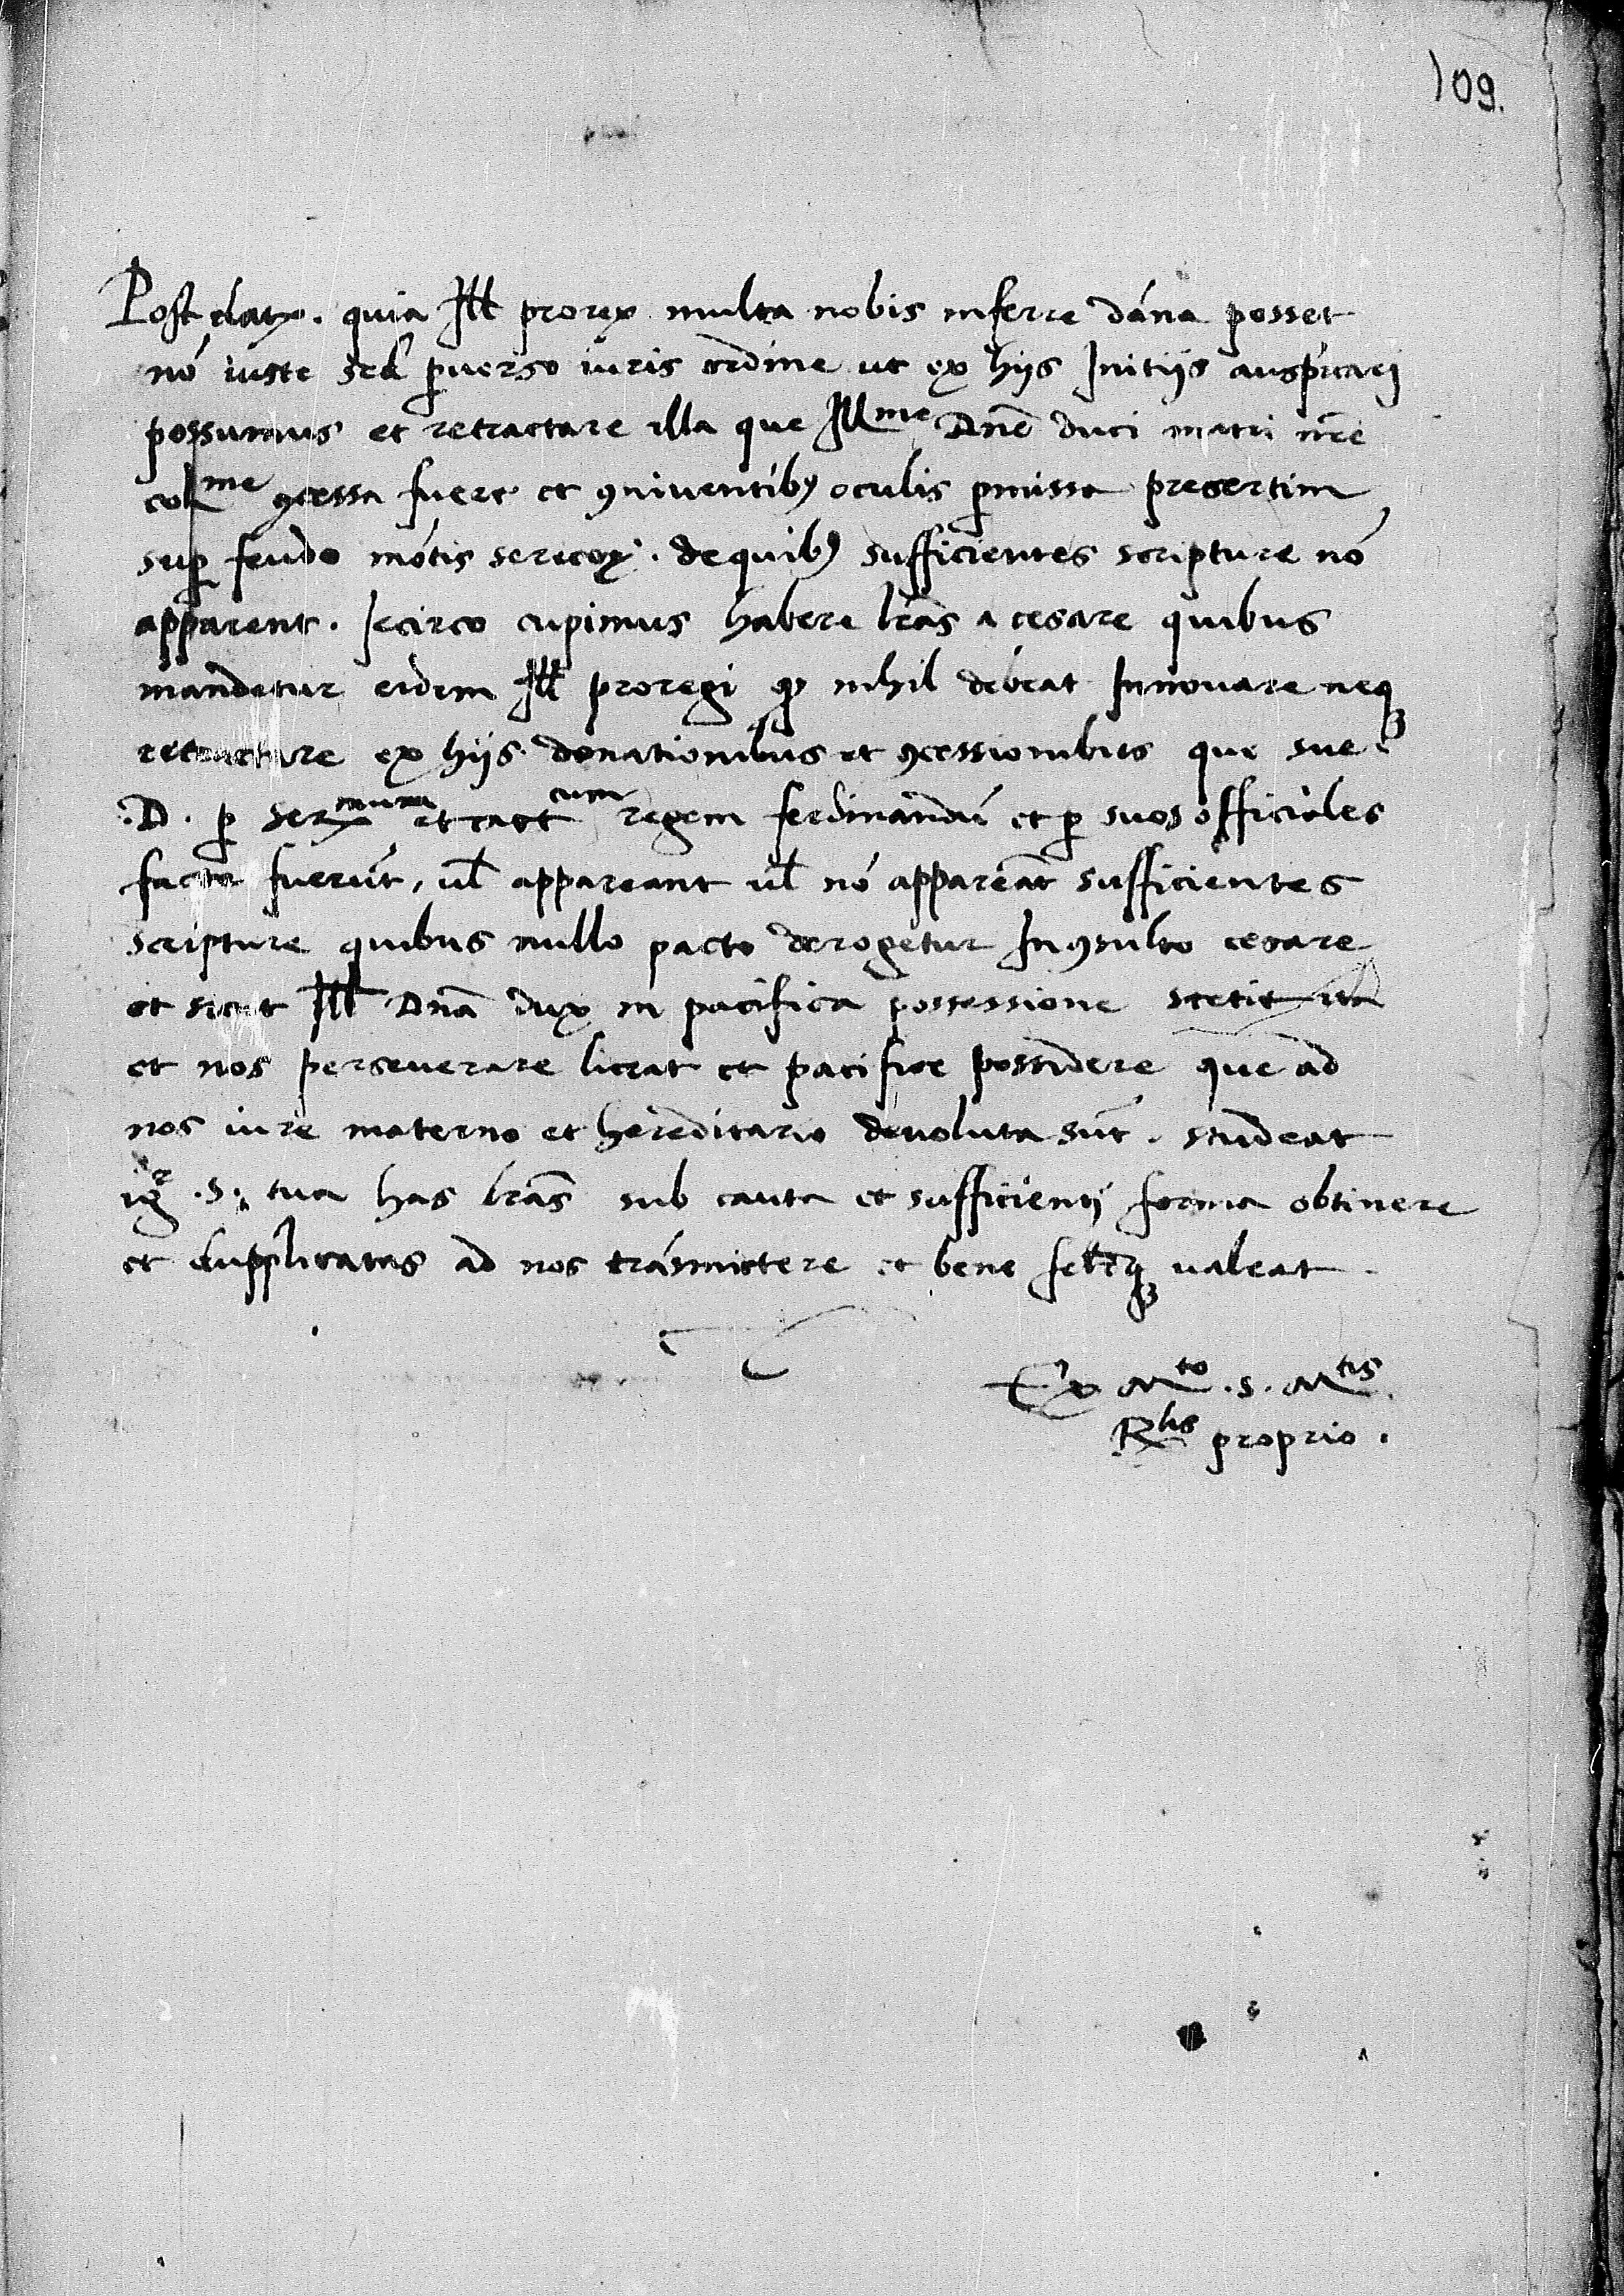 109.
Post datꝝ. quia Ill prorex multa nobis inferre dána posset
nó iuste sed ꝑuerso iuris ordine ut ex hijs Initijs auspicarj
possumus et retractare illa que Illme Dnē duci matri nrē
colme ꝯcessa fuert et ꝯniventibꝰ oculis ꝑmissa presertim
suꝑ feudo mótis sericoꝝ. de quibꝰ sufficientes scripture nó
apparent. Iccirco cupimus habere lrās a cesare quibus
mandetur eidem Ill proregi ꝙ nihil debeat Innovare neqꝫ
retractare ex hijs donationibus et ꝯcessionibus que sue
.D. ꝑ Sermum et catcum regem ferdinandū et ꝑ suos officiales
facta fuerūt, ul̄ appareant ul̄ nó appareāt sufficientes
scripture quibus nullo pacto derogetur Inꝯsulto cesare
et sicut Ill Dnā dux in pacifica possessione stetit ita
et nos perseverare liceat et pacifice possidere que ad
nos iure materno et hereditario devoluta sūt. studeat
igr .S. tua has lrās sub cauta et sufficientj forma obtinere
et dupplicatas ad nos trásmictere et bene felrqꝫ valeat.
Ex Mto .S. Mtis
Rlis proprio.